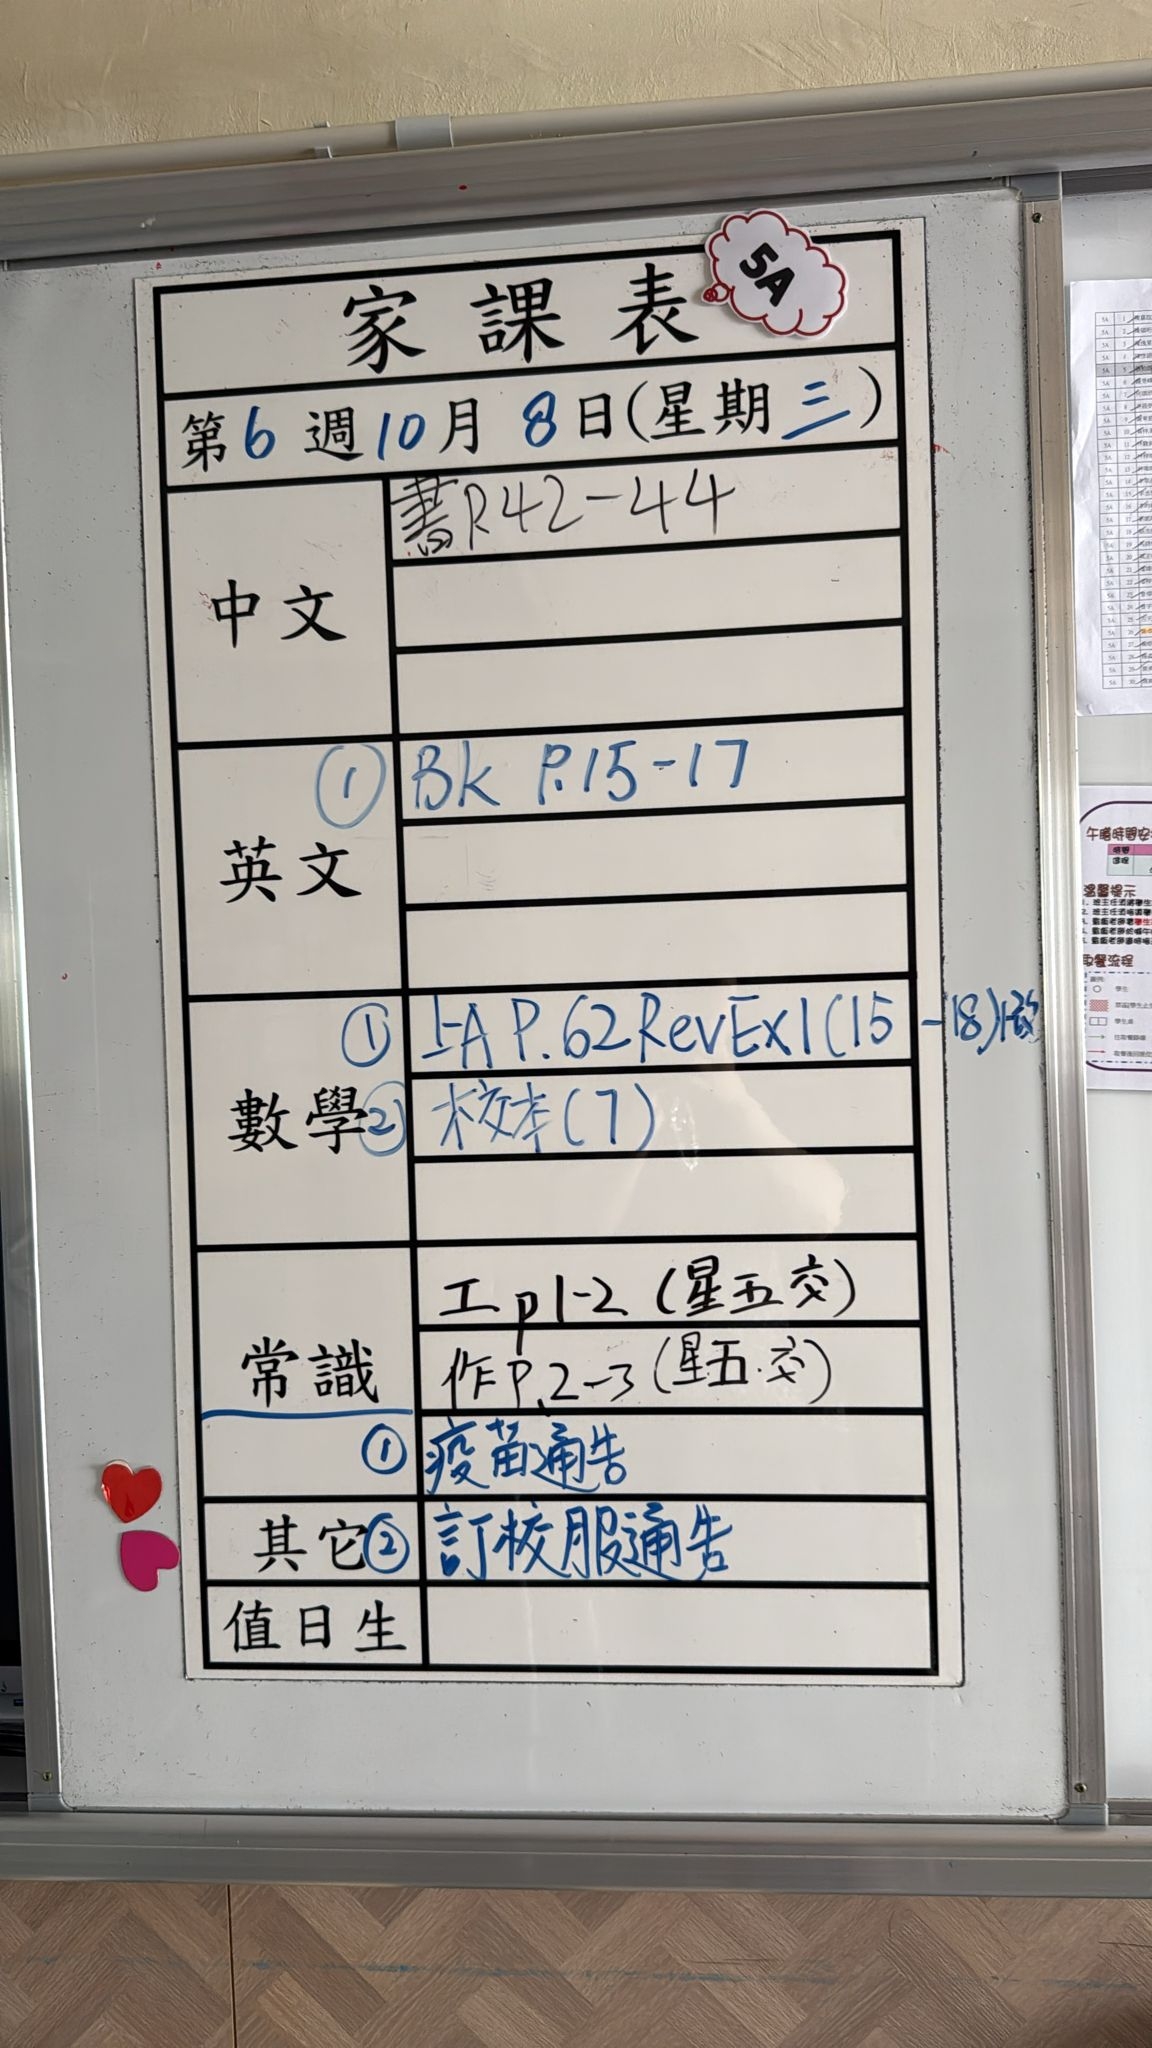 家課表
5A
第6週10月8日(星期三)
中文
書P.42-44
英文
① Bk P.15-17
數學
① 上A P.62 RevEx1(15-18)
② 校本(7)
常識
工p1-2 (星五交)
作P.2-3 (星五.交)
① 疫苗通告
其它
② 訂校服通告
值日生
午膳時間安
溫馨提示
取餐流程
學生